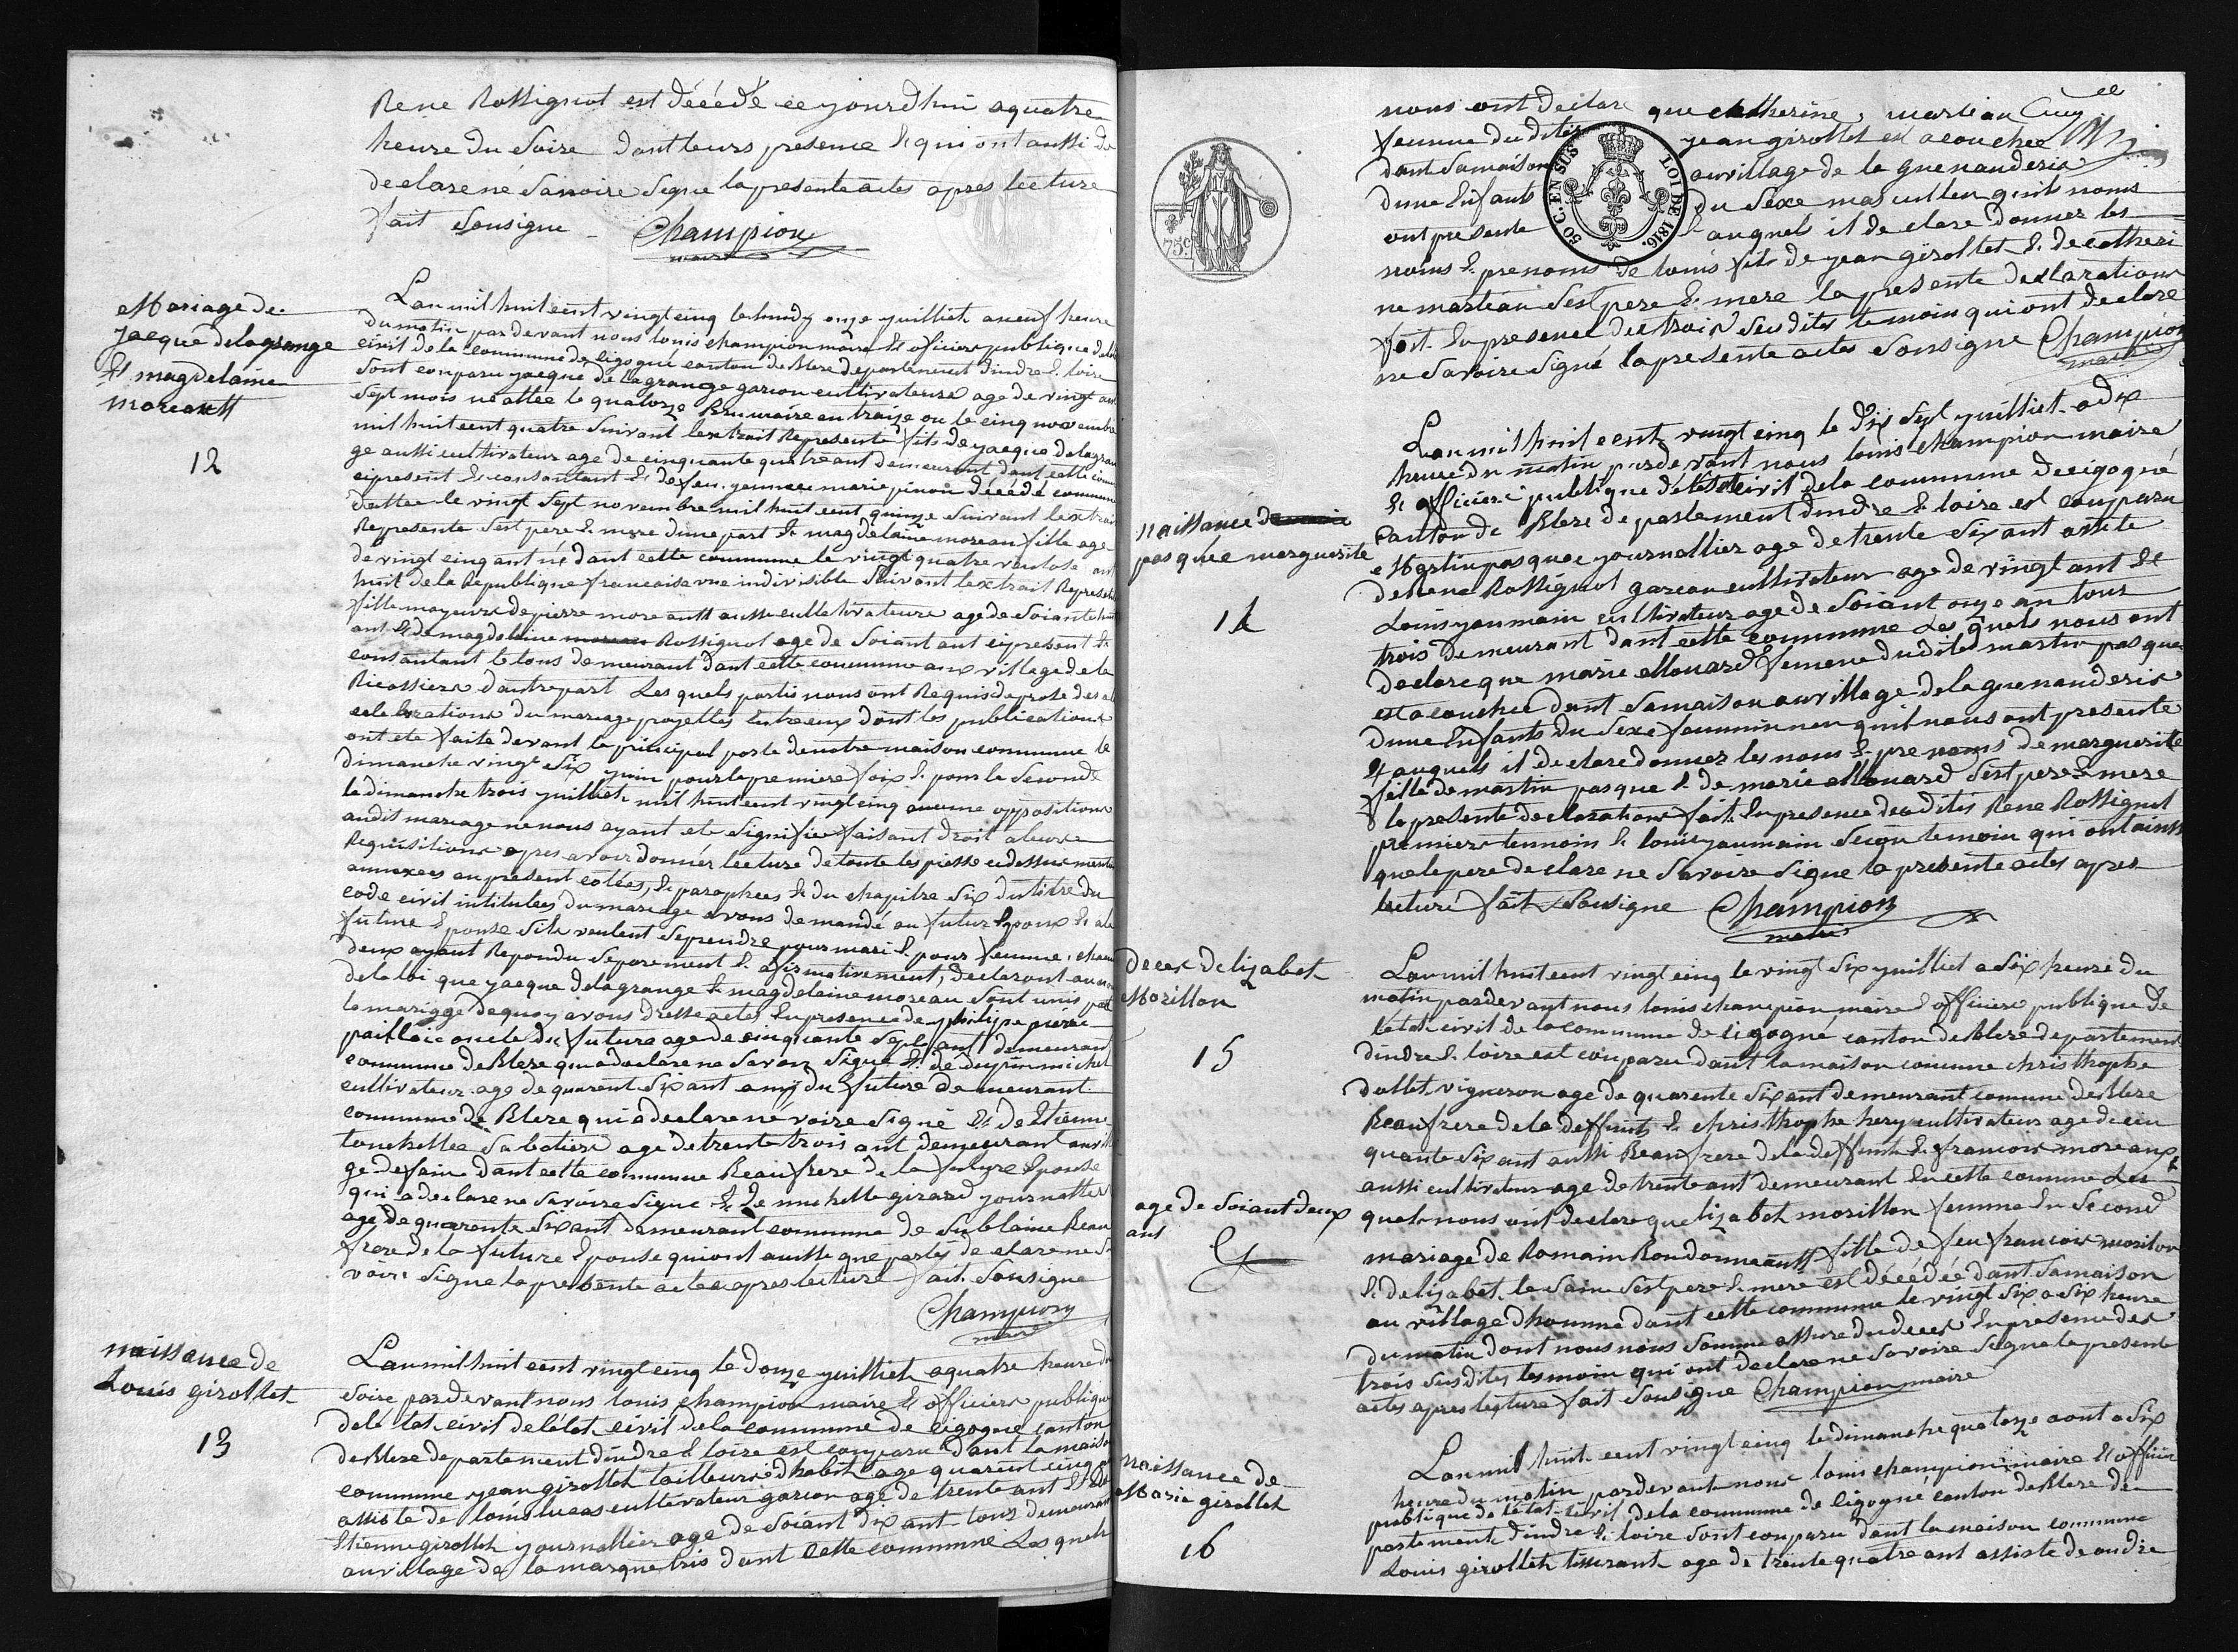 Rene Rossignol est décédé ce yourdhui aquatre
heure du Soire dant leurs presence & qui ont aussi de
declare ne Savoire Signe la presente actes apres lecture
fait Sousigne Champion
maire
Mariage de
Jacque delagrange
& magdelaine
moreault
12
Lan mil huit cent vingt cinq le lundy onze yuilliet aneuf heure
du matin par devant nous louis champion maire & oficiere publique de
civil de la Commune de cigogné canton de Blere departement dindre & loire
Sont conparu yacque de lagrange garcon cultivateure age de vingt ans
Sept mois né attée le quatorze Brumaire an traize ou le cinq novembre
mil huit cent quatre Suivant lextrait Represente fils de yacque delagran
ge aussi cultivateur age de cinquante quatre ant demeurant dant cette
cipresent & consantant & de feu marie pinon décédé commune
dattee le vingt Sept novembre mil huit cent quinze Suivant lextrait
Represente Sest pere & mere dune part & magdelaine moreau fille age
de vingt cinq ant né dant cette commune le vingt quatre ventose an
huit de la Republique francaise une indivisible Suivant lextrait Represente
fille mayeure de pierre moreault ausse cultivateure age de Soiante
ant & de magdelaine moreau Rossignol age de Soiant ant cipresent &
consantant le tous demeurant dant cette commune aux village de la
Ricossiere dautrepart Les quels partis nous ont Requis de prosedes a
celebrations du mariage proyettes Entreeux dont les publications
ont ete faite devant le principal porte denotre maison commune le
dimanche vingt Six yuin pour la premiere foix & pour la Seconde
le dimanche trois yuilliet mil huit cent vingt cinq aucune oppositions
audit mariage ne nous ayant ete Signifiee faisant droit aleure
Requisitions apres avoir donner lecture detoute les piesse cidessus
annexees au present cotées, & parophees & du chapitre Six du titre du
code civil intitulees du mariage avons demandé au futur Epoux & ala
future Epouse Sils veulent Seprendre pour mari & pour femme, chacun
deux ayant Repondu Séparement & afirmativement, declaront au nom
de la loi que yacque delagrange & magdelaine moreau Sont unis par
le mariage dequoy avons dresse actes En presence de philipe pierre
paillou oncle du future age de cinquante Sept ant demeurant
commune de Blere qui a declare ne Savoir Signe & de dupin michel
cultivateur age de quarent Six ant amy du future demeurant
commune de Blere qui a declare né voire Signé & de Etienne
tonchellee Sabotiere age de trente trois ant demeurant au
ge de faine dant cette commune Beaufrere de la future Epouse
qui a declare ne Savoire Signe & de michelle girard yournallier
age de quarente Six ant demeurant commune de Sublaine Beau
frere de la future Epouse qui ont ausse que partés declare ne S
voire Signe la presente actes apres lecture fait Sousigne
Champion
maire
naissance de
Louis girollet
13
Lan mil huit cent vingt cinq le douze yuilliet aquatre heure du
Soire pardevant nous louis champion maire & officiere publique
delé tat civil de létat civil de la commune de cigogne canton
de Blere departement dindre & loire est conparu dant la maison
commune yean girollet tailleure dhabit age quarent cinq
assiste de louis lucas cultivateur garcon age de trente ant & de
Etienne girollet yournallier age de Soiant dix ant tous demeurant
au village de la marquetris dant Cette commune Les quels
75.c
50 C. EN SUS
LOI DE 1816.
nous ont declare que catherine, marteau
femme du dites yean girollet est acouchee
dant Samaison au village de la guenauderie
dune Enfants du Sexe masculien quils nous
ont presente & auquels il declare donner les
noms & prenoms de louis fils de yean girollet & de catheri
ne marteau Sest pere & mere la presente declarations
fait En presence des trois Sus dites temoin qui ont declare
ne Savoire Signé la presente actes Sousigne Champion
maire
naissance de
pasquée marguerite
14
Lan mil huit cent vingt cinq le dix Sept yuilliet adix
heure du matin pardevant nous louis champion maire
& officiere publique de létat civil de la commune de cigogné
Canton de Blere departement dindre & loire est conparu
Martin pasquee yournallier age de trente Six ant assite
de Rene Rossignol garcon cultivateur age de vingt ant &
Louis yanmain cultivateur age de Soiant onze an tous
trois demeurant dant cette commune Les quels nous ont
declare que marie ellouard femme dudites martin pasque
est acouchee dant Samaison au village de la guenauderie
dune Enfants du Sexe feminien quils nous ont presente
& auquels il declare donner les noms & prenoms de marguerite
fille de martin pasque & de marie ellouard Sest pere & mere
la presente declarations fait En presence des dites Rene Rossignol
premiere temoin & louis yanmain Secon temoin qui ont ainsi
que le pere declare ne Savoire Signe la presente actes apres
lecture fait Sousigne Champion
maire
deces delizabet
Morillon
15
age de Soiant deux
ans
Lan mil huit cent vingt cinq le vingt Six yuilliet a Six heure du
matin pardevant nous louis champion maire & officiere publique de
létat civil de la commune de cigogné canton de Blere departement
dindre & loire est conparu dant la maison comune christhophe
dallet vigneron age de quarente Six ant demeurant comune de Blere
Beaufrere de la deffunts & christhophe hery cultivateur age de cin
quante Six ant aussi Beaufrere de la deffunte & francois moreaux
aussi cultivateur age de trente ant demeurant En cette comune Les
quels nous ont declare quelizabet morillon femme En Second
mariage de Romain Rondonneault fille de feu francois morilon
& delizabet le Saine Sest pere & mere est décédée dant Samaison
au village dhomme dant cette commune le vingt Six a Six heure
du matin dont nous nous Somme assure du deces En presence des
trois Susdites temoin qui ont declare ne Savoire Signe la presente
actes apres lecture fait Sousigne Champion maire
naissance de
Marie girollet
16
Lan mil huit cent vingt cinq le dimanche quatorze aout a Six
heure du matin pardevant nous louis champion maire & officiere
publique de létat civil de la commune de cigogné canton de Blere de
partement dindre & loire Sont conparu dant la maison commune
Louis girollet tisserant age de trente quatre ant assiste de andre